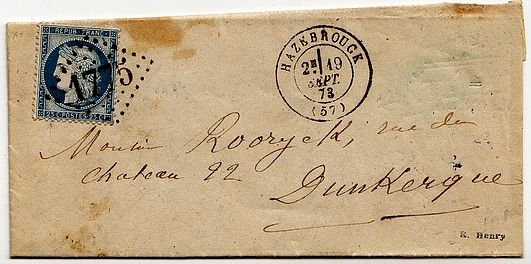 REPUB. FRANC.
25 C POSTES 25 C
175
HAZEBROUCK
2E 19
SEPT.
73
(57)
Monsieur Rooryck, rue du
Chateau 22
Dunkerque
E. Henry